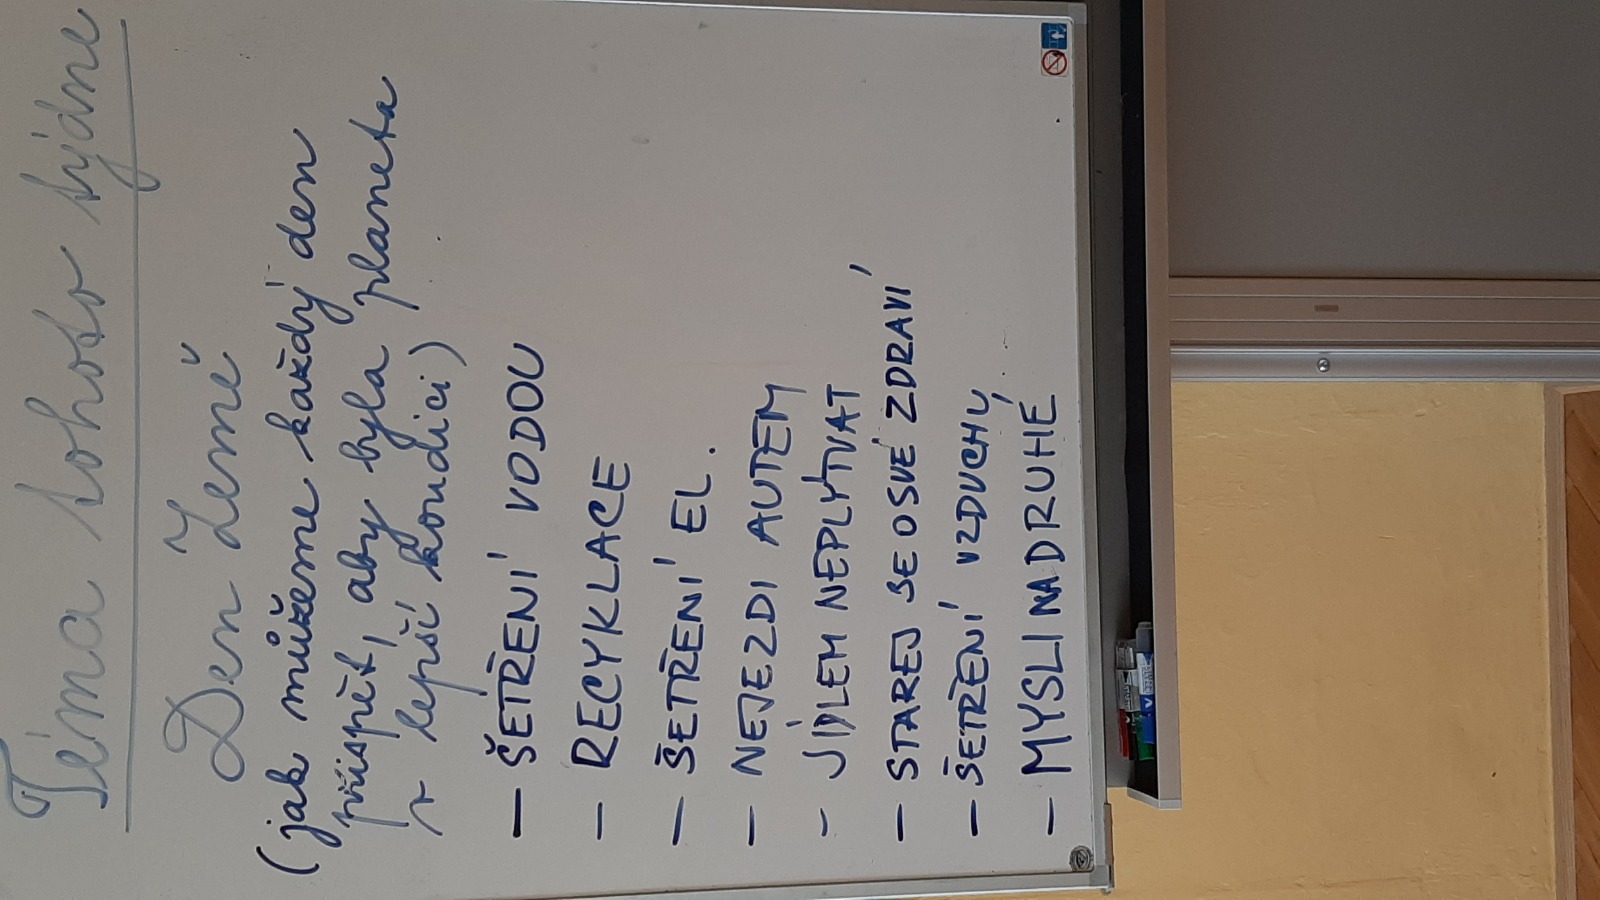 Téma tohoto týdne
Den Země
(jak můžeme každý den
přispět, aby byla planeta
v lepší kondici)
– ŠETŘENÍ VODOU
– RECYKLACE
– ŠETŘENÍ EL.
– NEJEZDI AUTEM
– JÍDLEM NEPLÝTVAT
– STAREJ SE O SVÉ ZDRAVÍ
– ŠETŘENÍ VZDUCHU
– MYSLI NA DRUHÉ